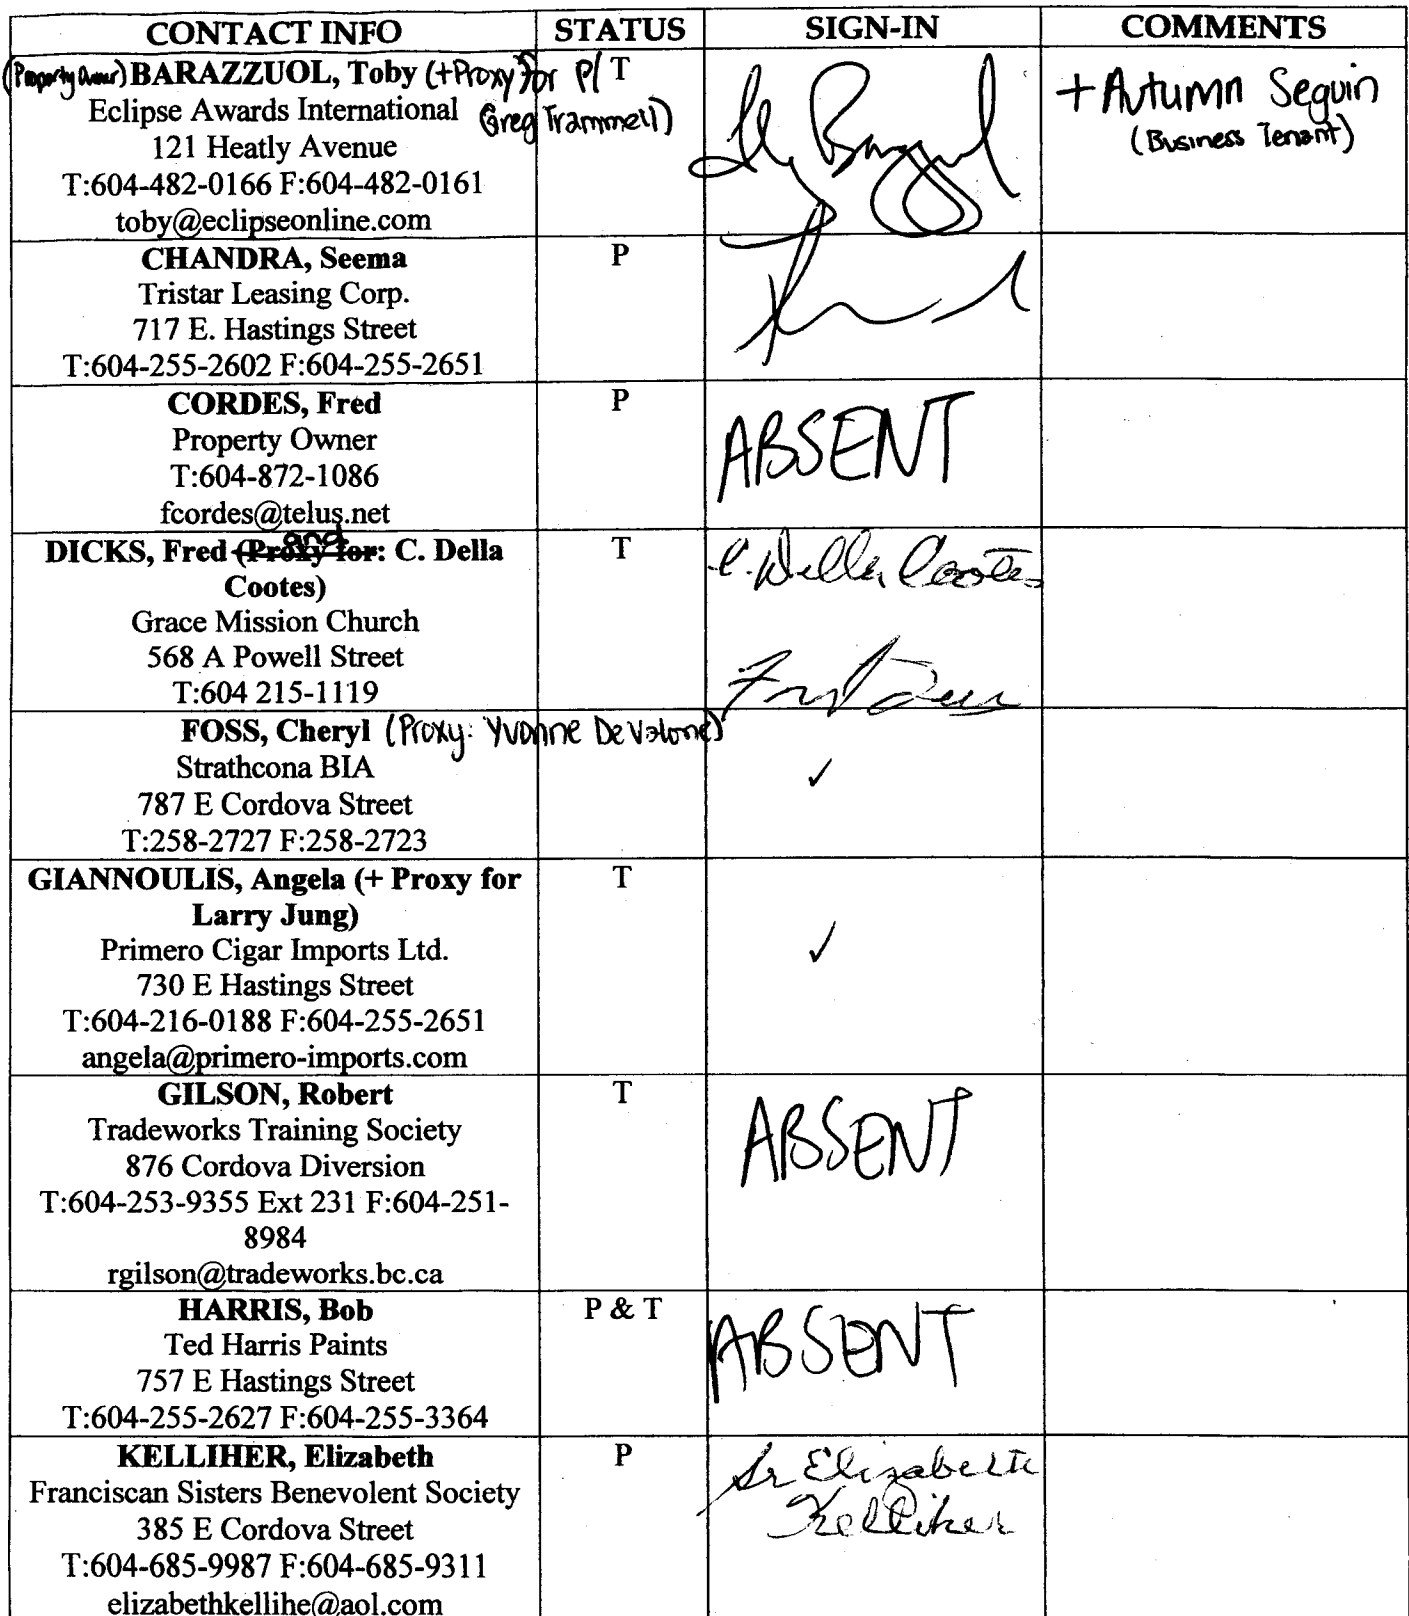 CONTACT INFO STATUS SIGN-IN COMMENTS
(Property Owner) BARAZZUOL, Toby (+Proxy for P/ T
Eclipse Awards International Greg Trammell)
121 Heatly Avenue
T:604-482-0166 F:604-482-0161
toby@eclipseonline.com
+ Autumn Seguin
(Business Tenant)
CHANDRA, Seema P
Tristar Leasing Corp.
717 E. Hastings Street
T:604-255-2602 F:604-255-2651
CORDES, Fred P
Property Owner
T:604-872-1086
fcordes@telus.net
ABSENT
DICKS, Fred (Proxy for: C. Della T
and
Cootes)
Grace Mission Church
568 A Powell Street
T:604 215-1119
C. Della Cootes
FOSS, Cheryl (Proxy: Yvonne DeValone)
Strathcona BIA ✓
787 E Cordova Street
T:258-2727 F:258-2723
GIANNOULIS, Angela (+ Proxy for T
Larry Jung)
Primero Cigar Imports Ltd. ✓
730 E Hastings Street
T:604-216-0188 F:604-255-2651
angela@primero-imports.com
GILSON, Robert T
Tradeworks Training Society
876 Cordova Diversion
T:604-253-9355 Ext 231 F:604-251-
8984
rgilson@tradeworks.bc.ca
ABSENT
HARRIS, Bob P & T
Ted Harris Paints
757 E Hastings Street
T:604-255-2627 F:604-255-3364
ABSENT
KELLIHER, Elizabeth P
Franciscan Sisters Benevolent Society
385 E Cordova Street
T:604-685-9987 F:604-685-9311
elizabethkellihe@aol.com
Sr Elizabeth
Kelliher